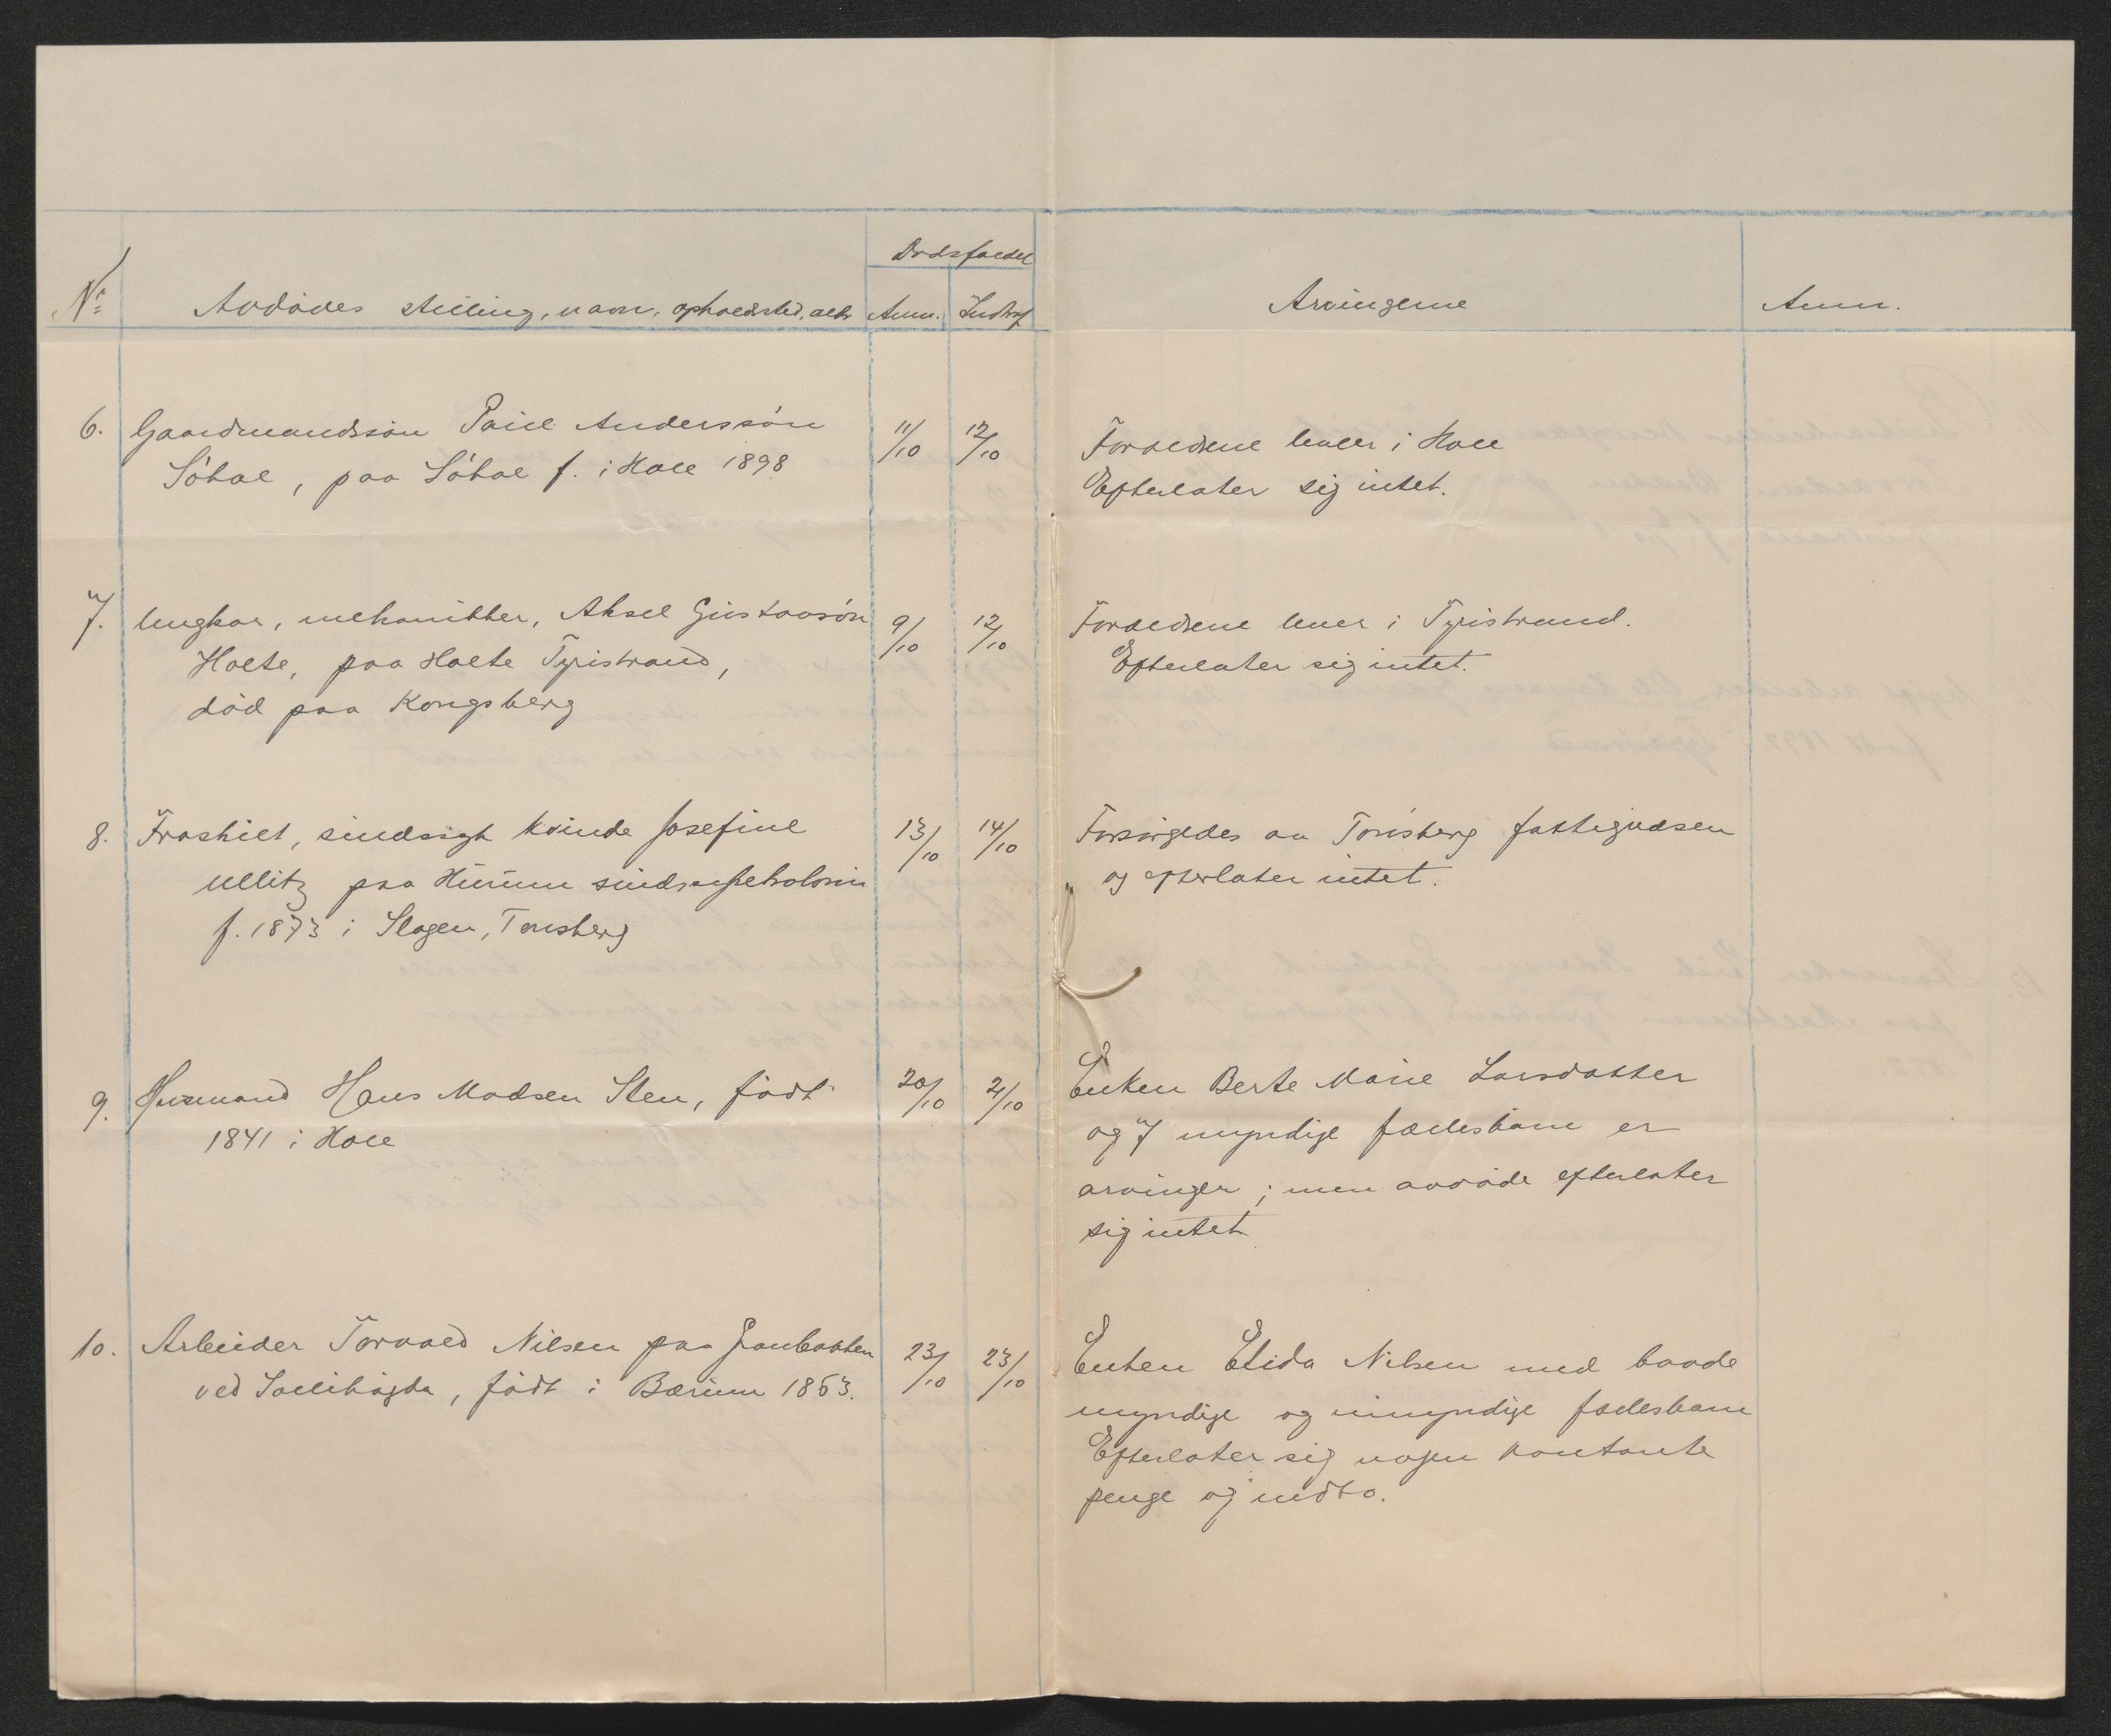 Dødsfaldet
No Avdødes stilling, navn, opholdssted, alder Anm. Indtraf Arvingerne Anm.
6. Gaardmandssøn Paul Anderssøn 11/10 12/10
Søhol, paa Søhol f. i Hole 1898
Forældrene lever i Hole
Efterlater sig intet.
7. Ungkar, mekanikker, Aksel Gustavsøn 9/10 12/10
Holte, paa Holte Tyristrand,
død paa Kongsberg
Forældrene lever i Tyristrand.
Efterlater sig intet.
8. Fraskilt, sindssygk kvinde Josefine 13/10 14/10
Ullitz paa Hurum sindssykekoloni
f. 1873 i Slagen, Tønsberg
Forsørgedes av Tønsberg fattigvæsen
og efterlater intet.
9. Husmand Hans Madsen Sten, født 20/10 2/10
1841 i Hole
Enken Berte Marie Larsdatter
og 7 myndige fællesbarn er
arvinger; men avdøde efterlater
sig intet
10. Arbeider Torvald Nilsen paa Granbakken 23/10 23/10
ved Sollihøgda, født i Bærum 1863.
Enken Elida Nilsen med baade
myndige og umyndige fællesbarn
Efterlater sig nogen kontante
penge og indbo.